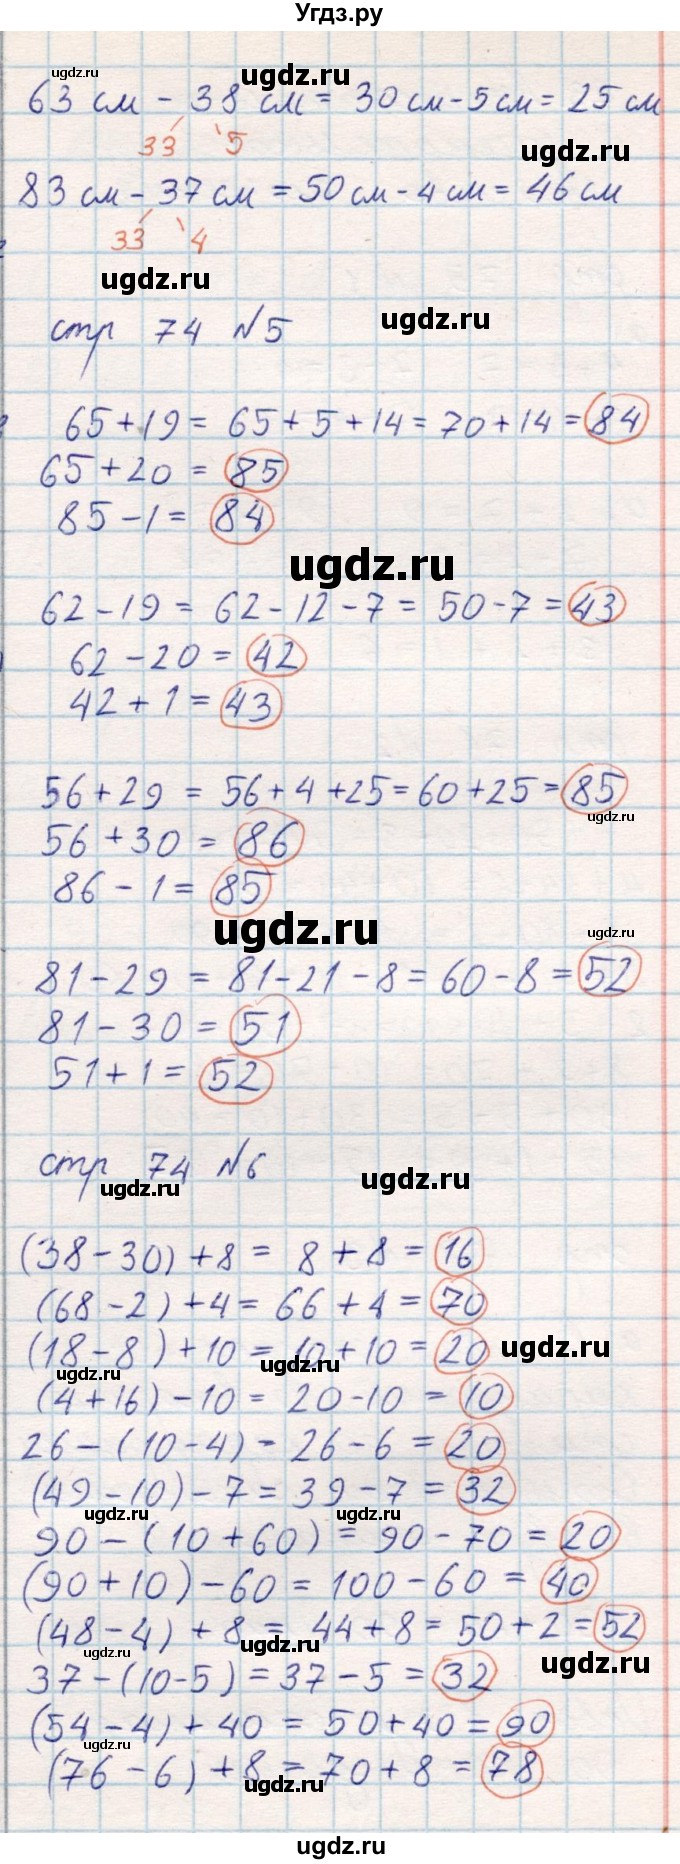 Угдз.ру
ugdz.ru
ugdz.ru
63 см - 38 см = 30 см - 5 см = 25 см
33 5
ugdz.ru
83 см - 37 см = 50 см - 4 см = 46 см
33 4
ugdz.ru
ugdz.ru
стр 74 №5
65 + 19 = 65 + 5 + 14 = 70 + 14 = 84
65 + 20 = 85
85 - 1 = 84
ugdz.ru
62 - 19 = 62 - 12 - 7 = 50 - 7 = 43
62 - 20 = 42
42 + 1 = 43
56 + 29 = 56 + 4 + 25 = 60 + 25 = 85
ugdz.ru
56 + 30 = 86
86 - 1 = 85
ugdz.ru
ugdz.ru
81 - 29 = 81 - 21 - 8 = 60 - 8 = 52
81 - 30 = 51
51 + 1 = 52
стр 74 №6
ugdz.ru
ugdz.ru
(38 - 30) + 8 = 8 + 8 = 16
(68 - 2) + 4 = 66 + 4 = 70
(18 - 8) + 10 = 10 + 10 = 20
ugdz.ru
ugdz.ru
ugdz.ru
(4 + 16) - 10 = 20 - 10 = 10
26 - (10 - 4) = 26 - 6 = 20
(49 - 10) - 7 = 39 - 7 = 32
ugdz.ru
ugdz.ru
90 - (10 + 60) = 90 - 70 = 20
(90 + 10) - 60 = 100 - 60 = 40
(48 - 4) + 8 = 44 + 8 = 50 + 2 = 52
ugdz.ru
ugdz.ru
ugdz.ru
37 - (10 - 5) = 37 - 5 = 32
(54 - 4) + 40 = 50 + 40 = 90
ugdz.ru
(76 - 6) + 8 = 70 + 8 = 78
ugdz.ru
ugdz.ru